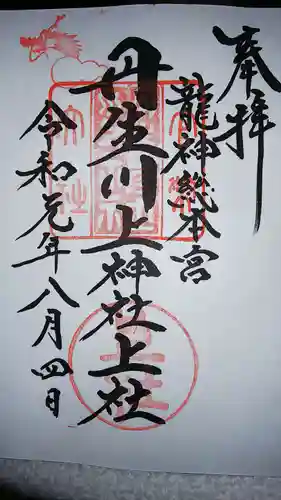 奉拝
龍神總本宮
丹生川上神社上社
令和元年八月四日